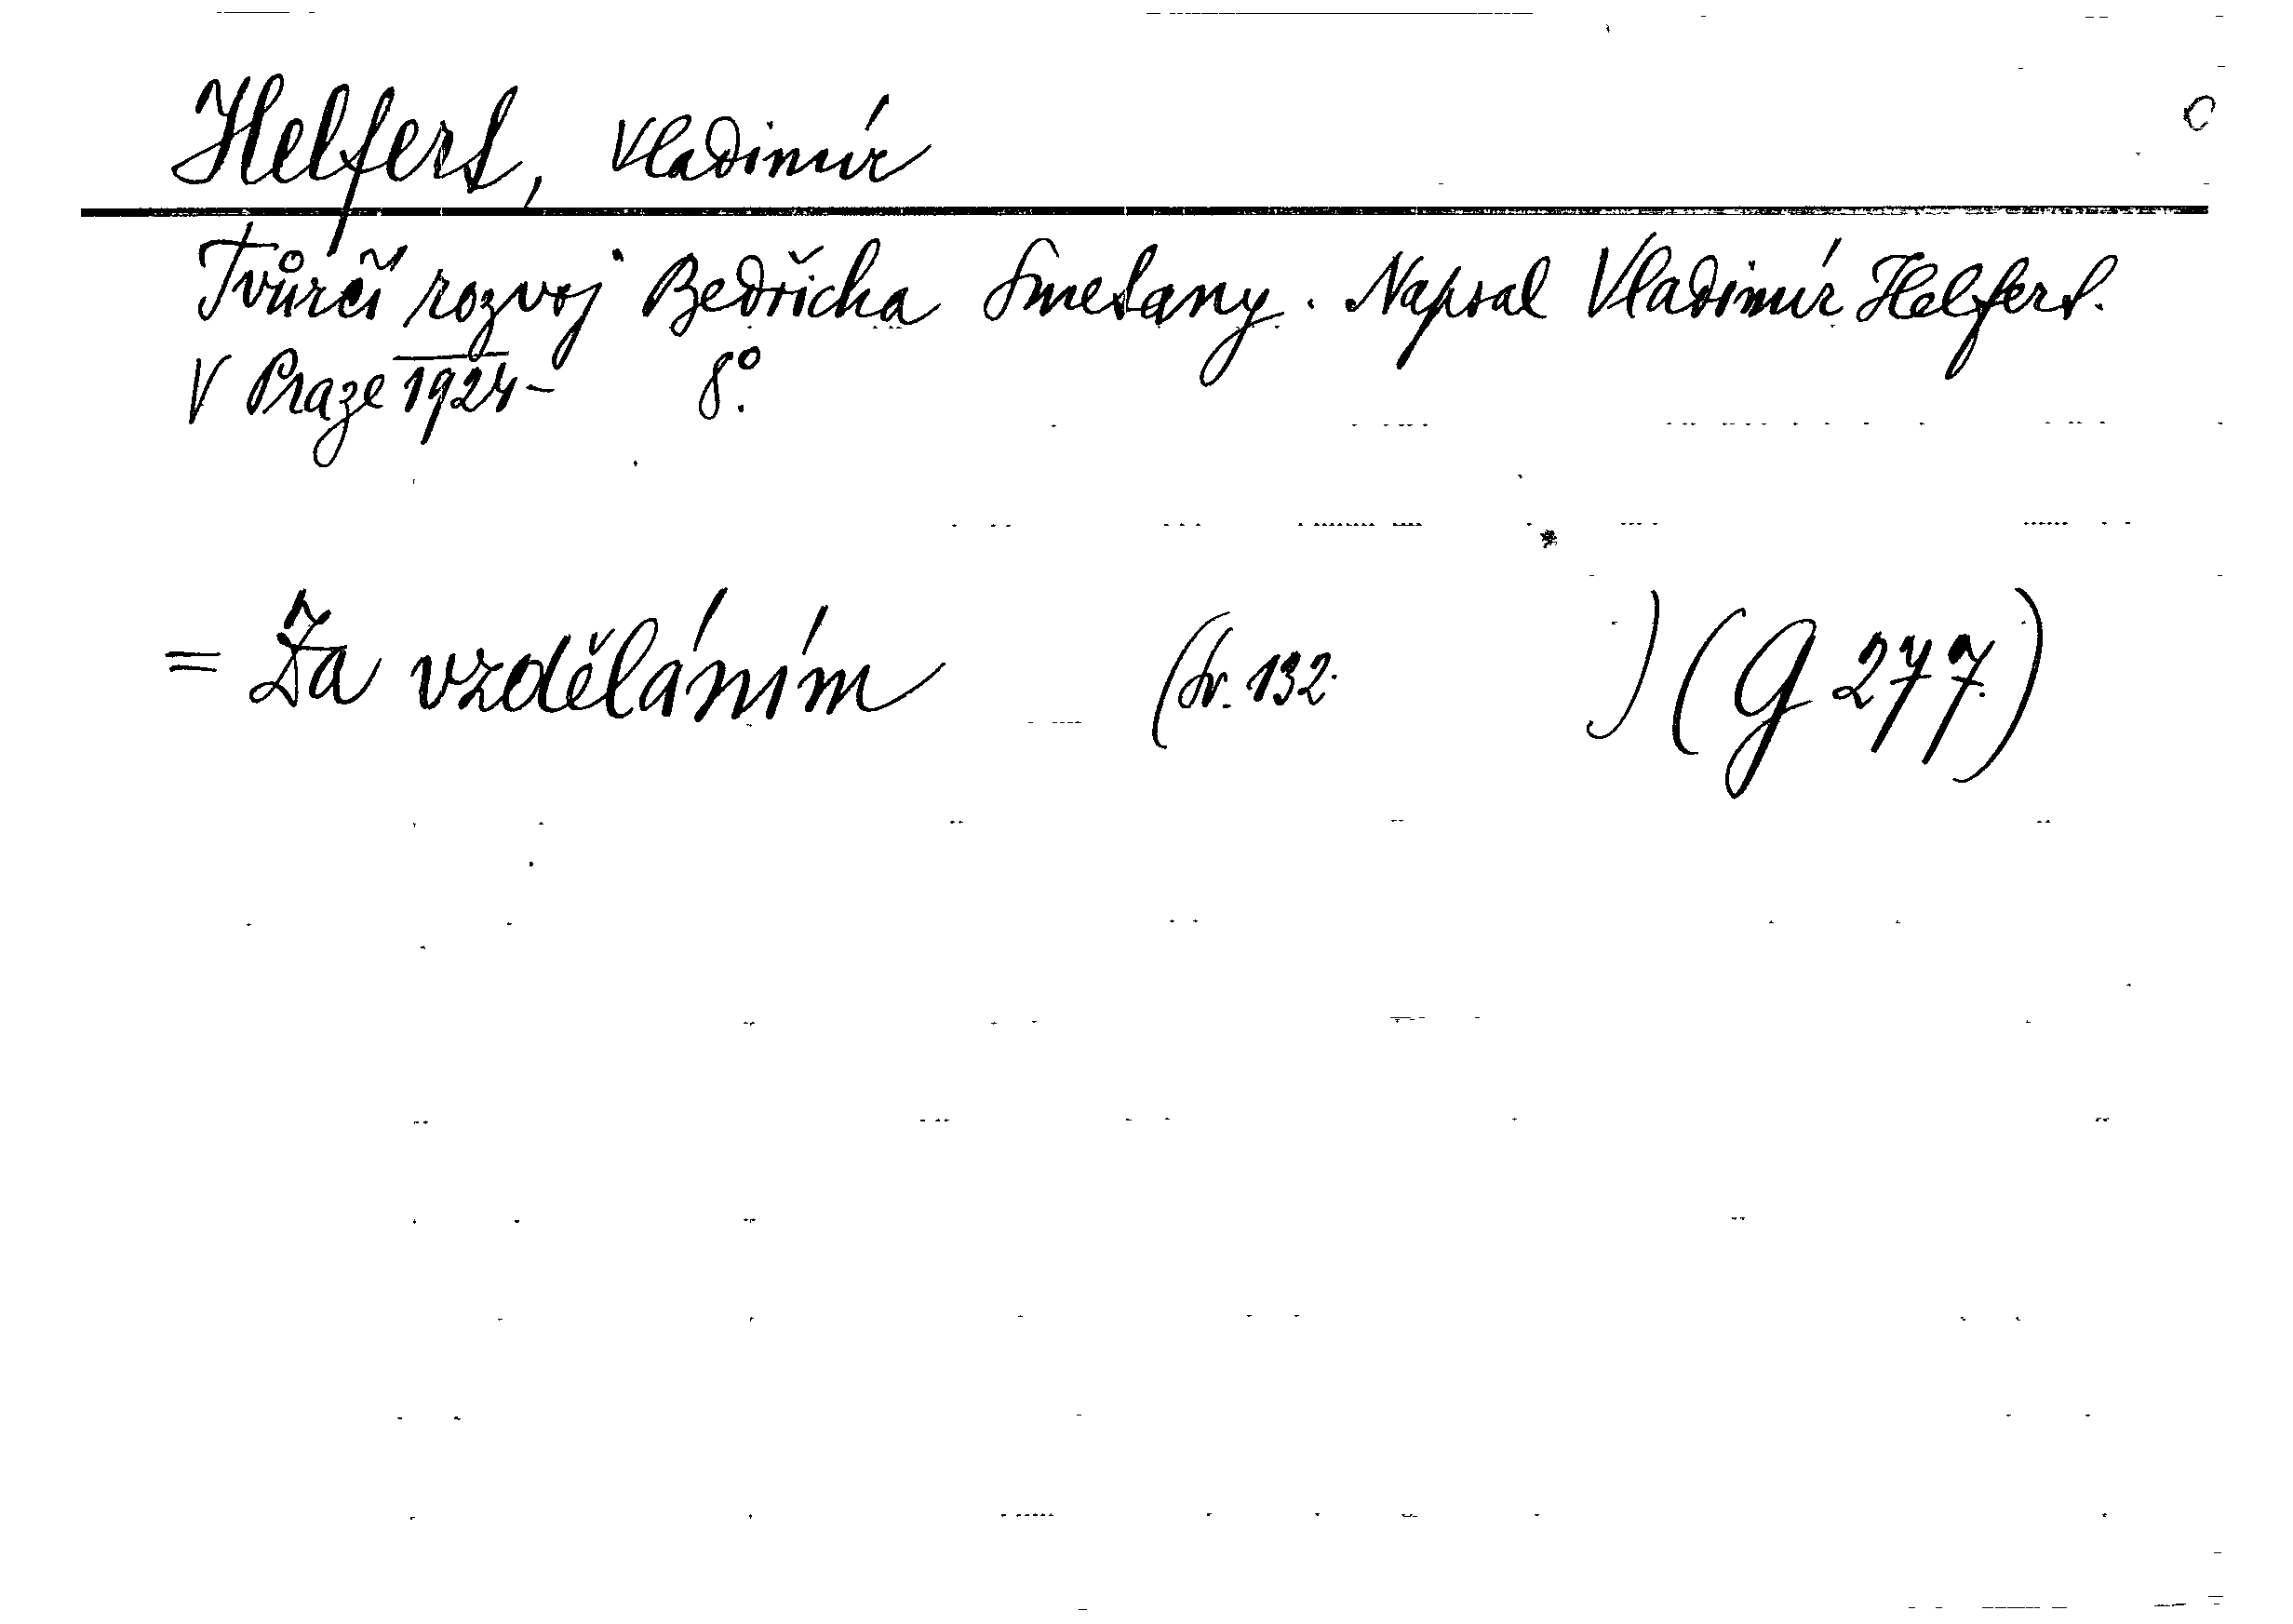 C
Helfert, Vladimír
Tvůrčí rozvoj Bedřicha Smetany. Napsal Vladimír Helfert.
V Praze 1924- 8°.
= Za vzděláním (Sv. 132. ) (G 277.)